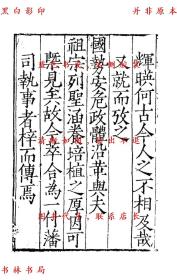 黑白影印 并非原本
輝暎何古今人之不相及哉
又就而攷之
國埶安危政體沿革與夫
祖宗列聖涵養培植之原因可
槩見矣故合為一付藩
司執事者梓而傳焉
书林书局